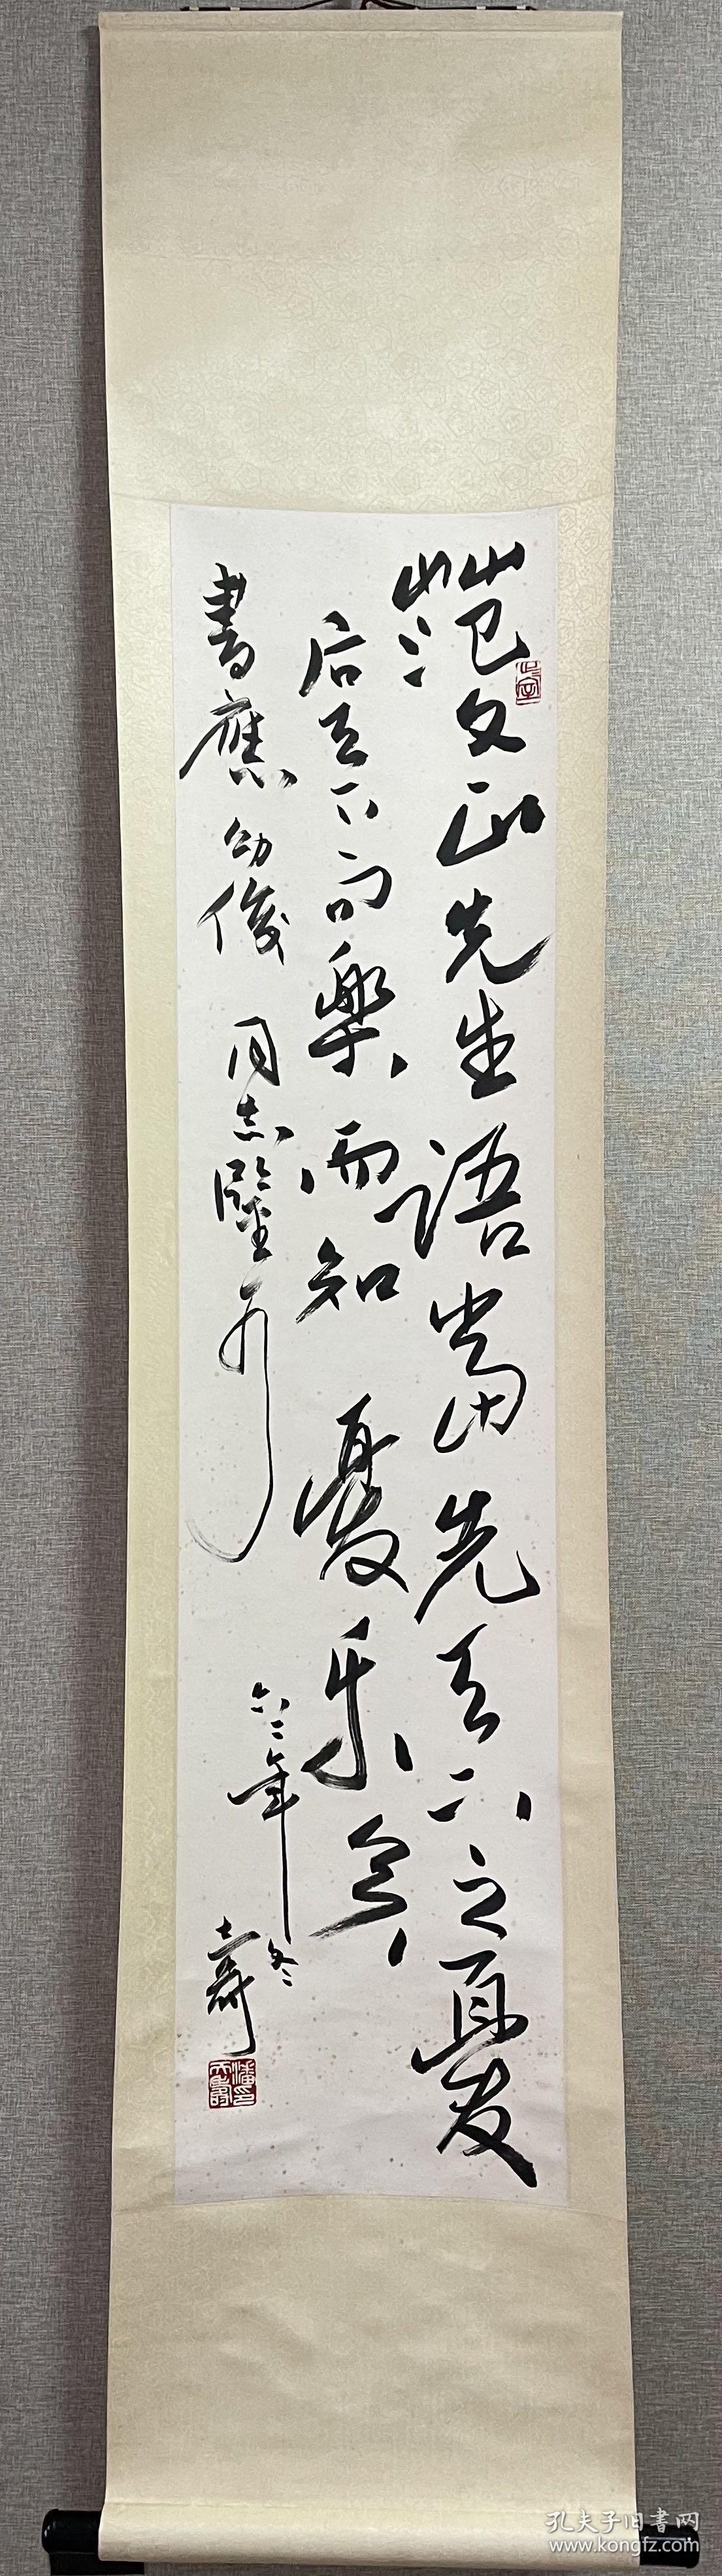 范文正先生語當先天下之憂
后天下而樂而知憂樂矣
書應幼俊同志鑒可
六二年冬
壽
潘天壽印
孔夫子旧書网
www.kongfz.com